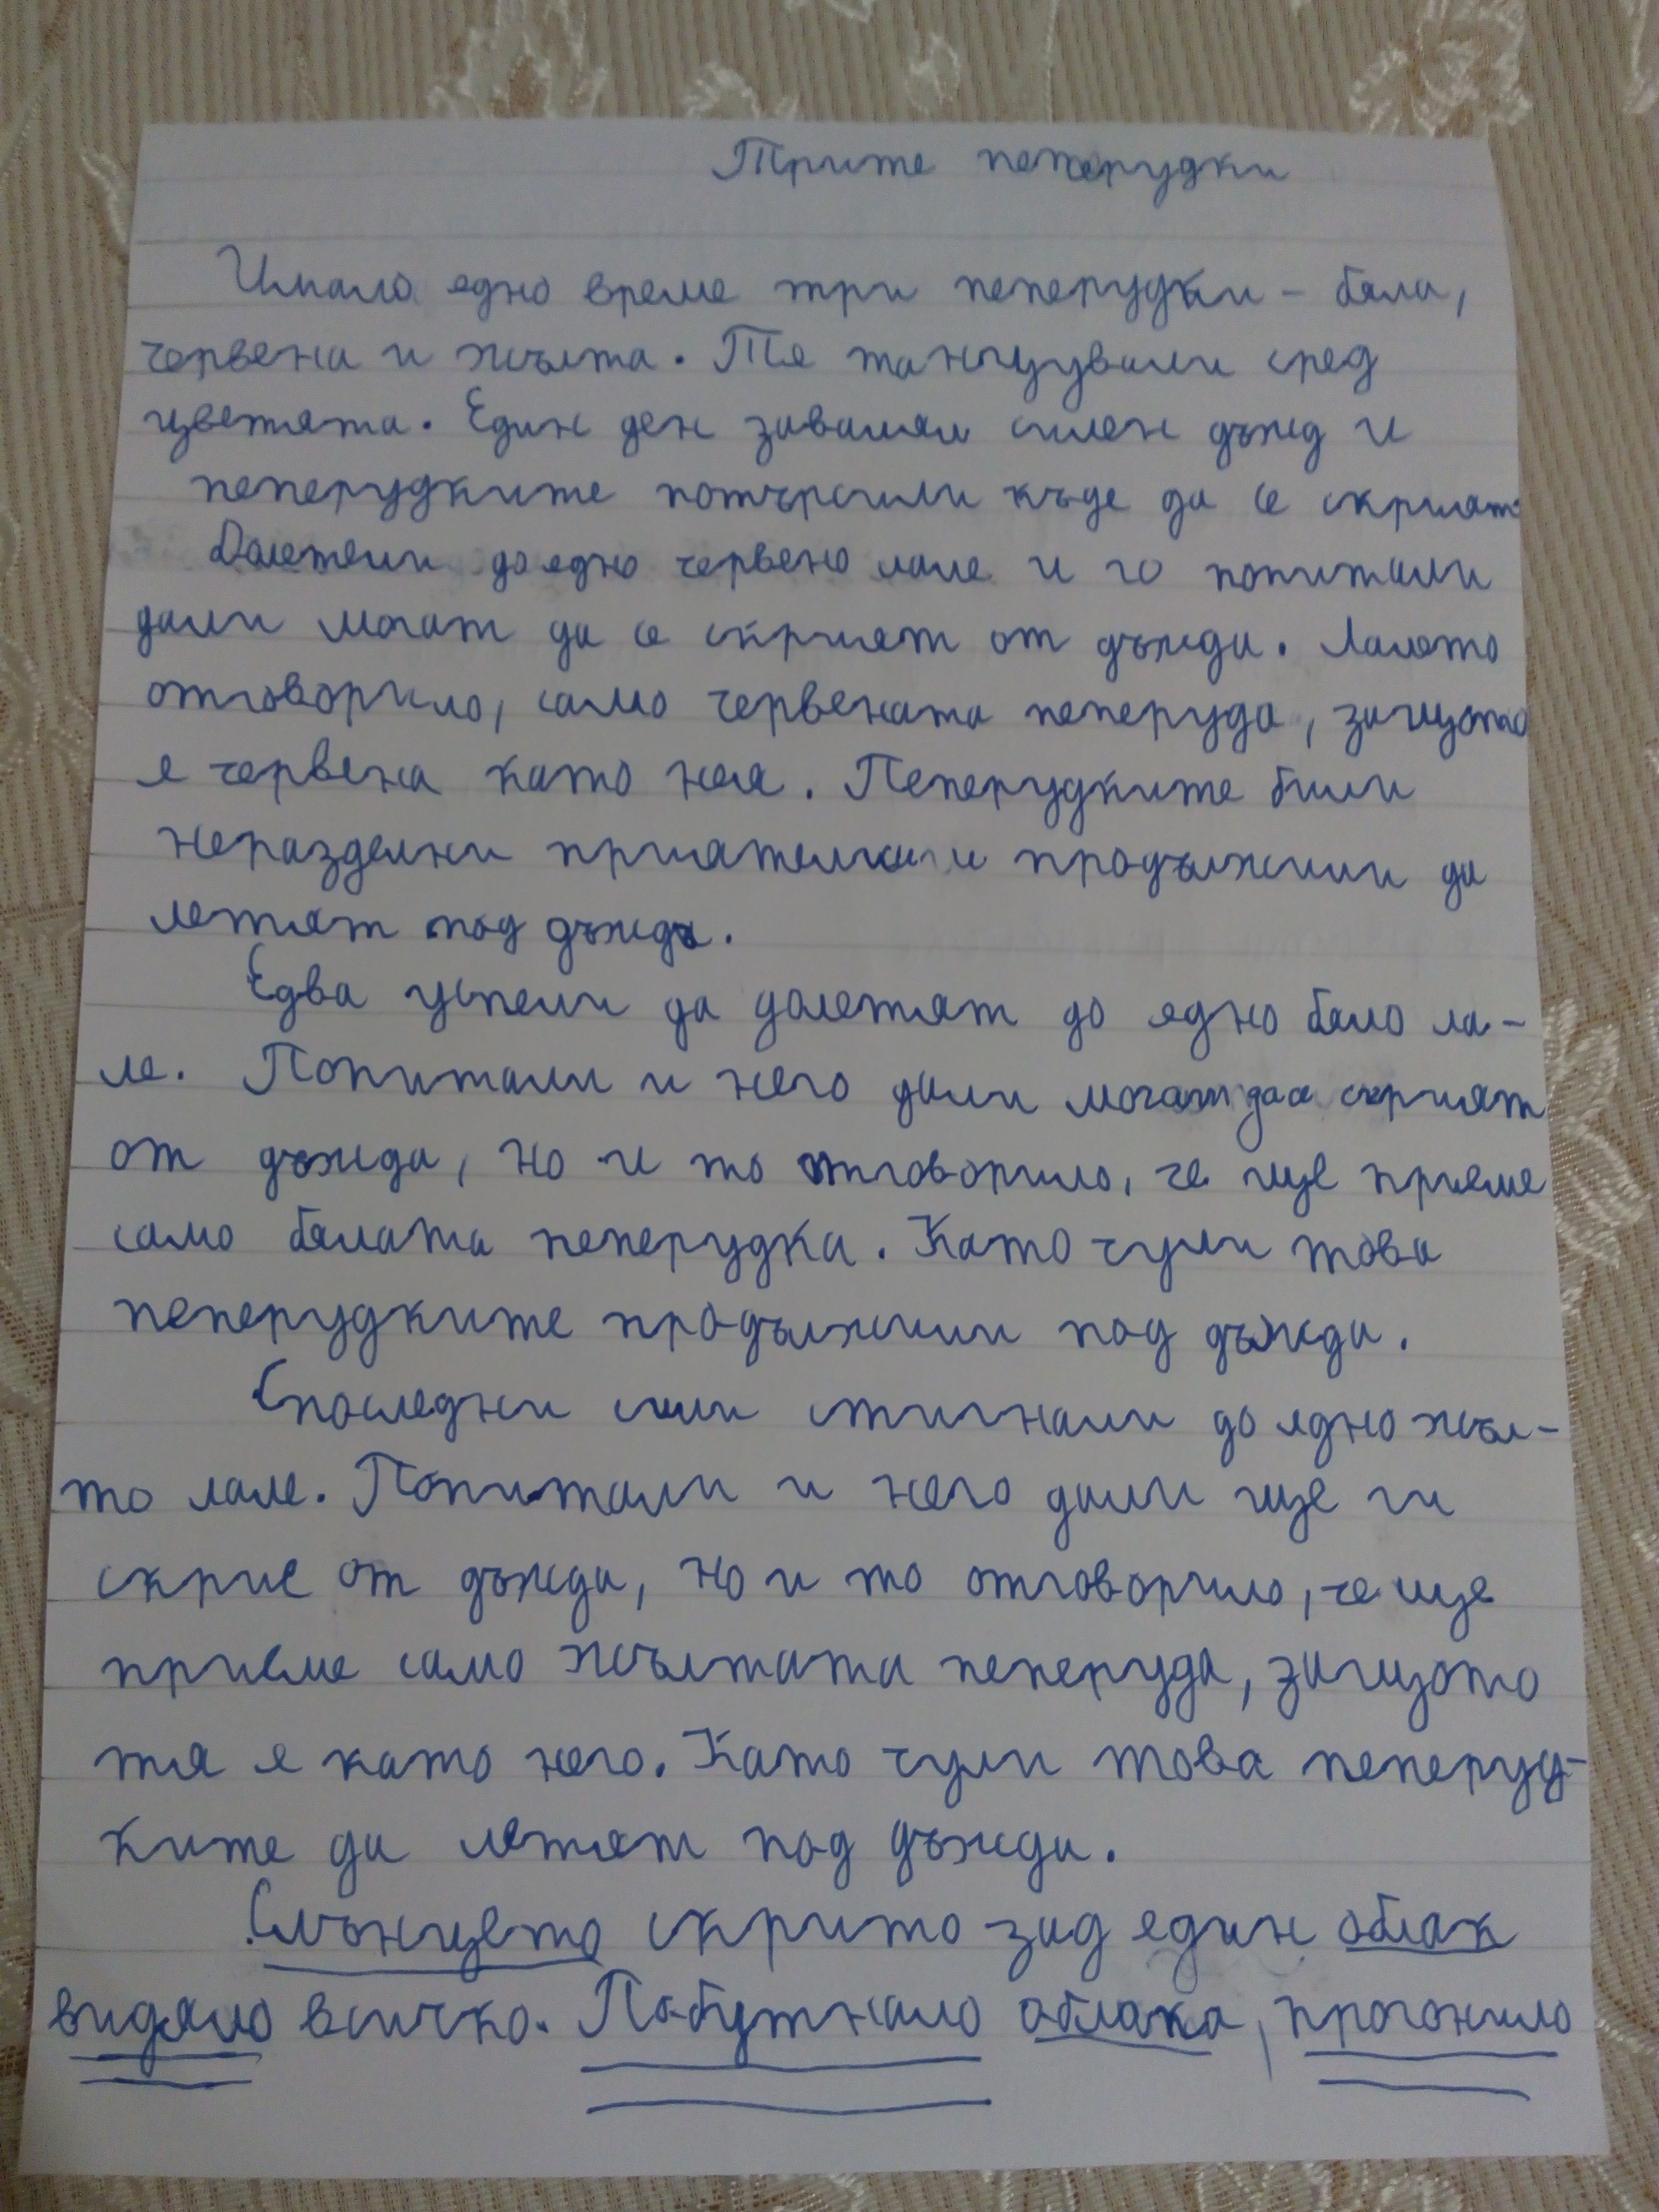 Трите пеперудки
Имало едно време три пеперудки - бяла,
червена и жълта. Те танцували сред
цветята. Един ден завалял силен дъжд и
пеперудките потърсили къде да се скрият.
Долетели до едно червено лале и го попитали
дали могат да се скрият от дъжда. Лалето
отговорило, само червената пеперуда, защото
е червена като нея. Пеперудките били
неразделни приятелки и продължили да
летят под дъжда.
Едва успели да долетят до едно бяло ла-
ле. Попитали и него дали могат да се скрият
от дъжда, но и то отговорило, че ще приеме
само бялата пеперудка. Като чули това
пеперудките продължили под дъжда.
С последни сили стигнали до едно жъл-
то лале. Попитали и него дали ще ги
скрие от дъжда, но и то отговорило, че ще
приеме само жълтата пеперуда, защото
тя е като него. Като чули това пеперуд-
ките да летят под дъжда.
Слънцето скрито зад един облак
видяло всичко. Побутнало облака, прогонило